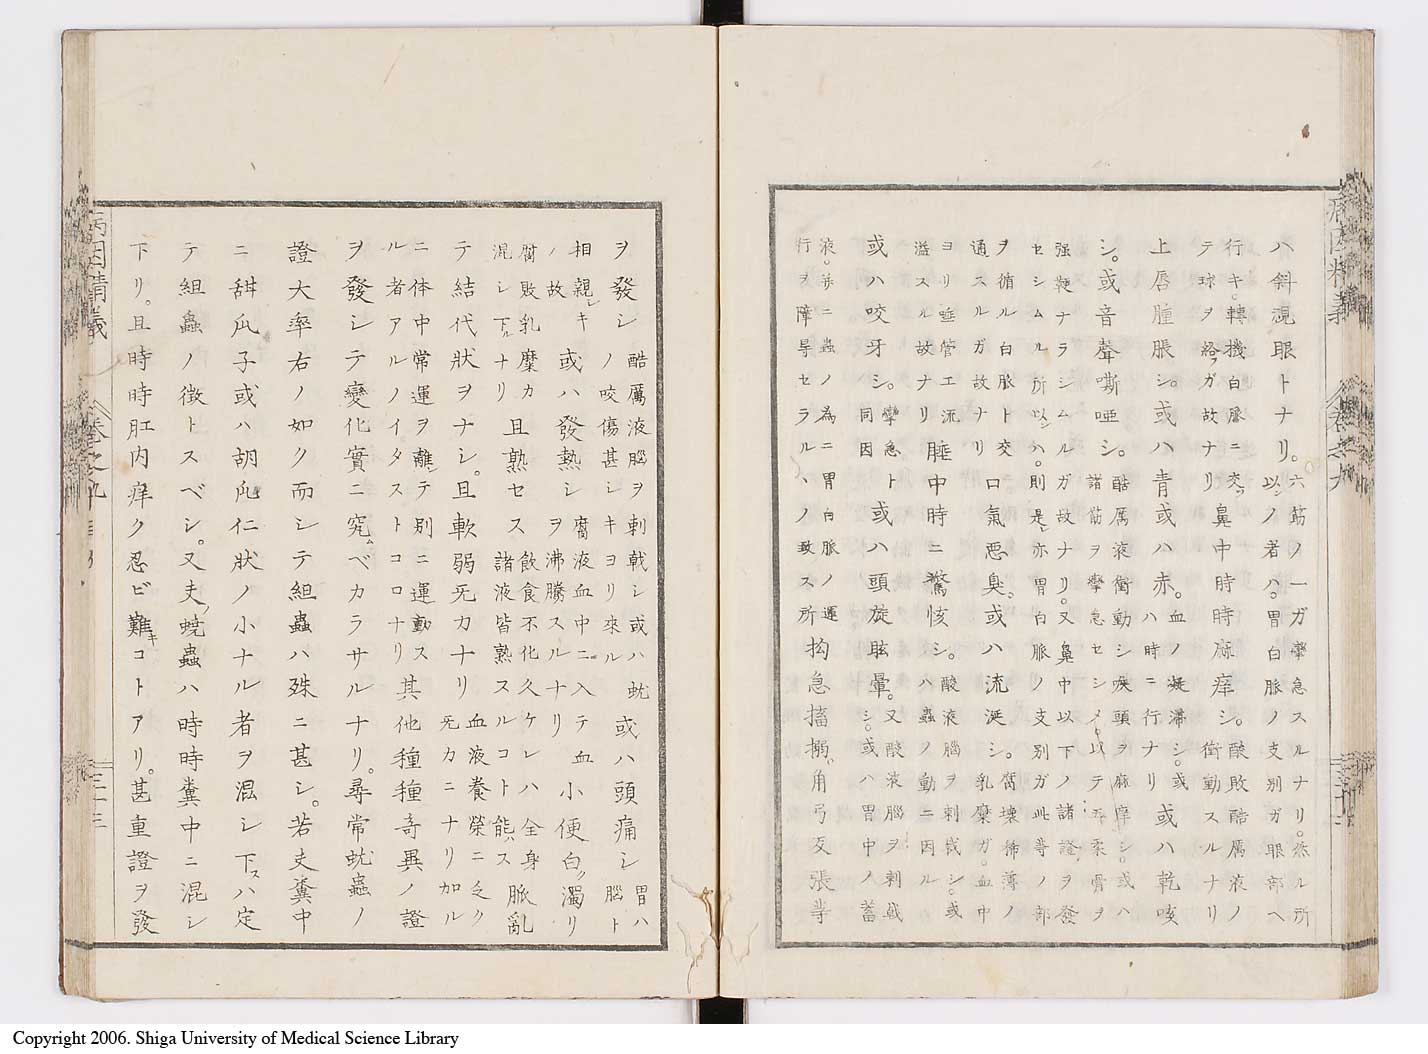 ハ斜視眼トナリ。六筋ノ一ガ攣急スルナリ。然ル所
以ンノ者ハ。胃白脈ノ支別ガ眼部ヘ
行キ。轉機白脈ニ交フ
テ球ヲ絡フガ故ナリ鼻中時時痲痒シ。酸敗酷厲液ノ
衝動スルナリ
上唇腫脹シ。或ハ青或ハ赤。血ノ凝滞シ。或
ハ時ニ行ナリ或ハ乾咳
シ。或音聲嘶唖シ。酷厲液衝動シ疾頭ヲ麻摩シ。或ハ
諸筋ヲ攣急セシメ。以テ吾柔骨ヲ
强鞕ナラシムルガ故ナリ。又鼻中以下ノ諸證ヲ發
セシムル所以ンハ。則是レ亦胃白脈ノ支別ガ此等ノ部
ヲ循ル白脈ト交
通スルガ故ナリ口氣悪臭。或ハ流涎シ。腐壊稀薄ノ
乳糜ガ。血中
ヨリ唾管エ流
溢スル故ナリ睡中時ニ驚悸シ。酸液腦ヲ刺戟シ。或
ハ蟲ノ動ニ因ル
或ハ咬牙シ。攣急ト
同因或ハ頭旋眩暈。又酸液腦ヲ刺戟
シ。或ハ胃中ノ蓄
液。并ニ蟲ノ為ニ胃白脈ノ運
行ヲ障㝵セラルヽハノ致ス所拘急搐搦。角弓反張等
ヲ發シ酷厲液腦ヲ刺戟シ或ハ蚘
ノ咬傷甚シキヨリ來ル或ハ頭痛シ胃ハ
腦ト
相親シキ
ノ故或ハ發熱シ腐液血中ニ入テ血
ヲ沸騰スルナリ小便白ク濁リ
腐敗乳糜カ
混シ下ルナリ且熟セス飲食不化久ケレハ全身
諸液皆熟スルコト能ハス脈亂
テ結代狀ヲナシ。且軟弱旡力ナリ血液養榮ニ乏ク
旡力ニナリ加ル
ニ体中常運ヲ離シテ別ニ運動ス
ル者アルノイタストコロナリ其他種種奇異ノ證
ヲ發シテ變化實ニ究ムベカラサルナリ。尋常蚘蟲ノ
證大率右ノ如ク而シテ組蟲ハ殊ニ甚シ。若夫糞中
ニ甜瓜子或ハ胡瓜仁狀ノ小ナル者ヲ混シ下スハ定
テ組蟲ノ徴トスベシ。又夫ノ蟯蟲ハ時時糞中ニ混シ
下リ。且時時肛内痒ク忍ビ難キコトアリ。甚重證ヲ發
病因精義 卷之九 三十三
Copyright 2006. Shiga University of Medical Science Library